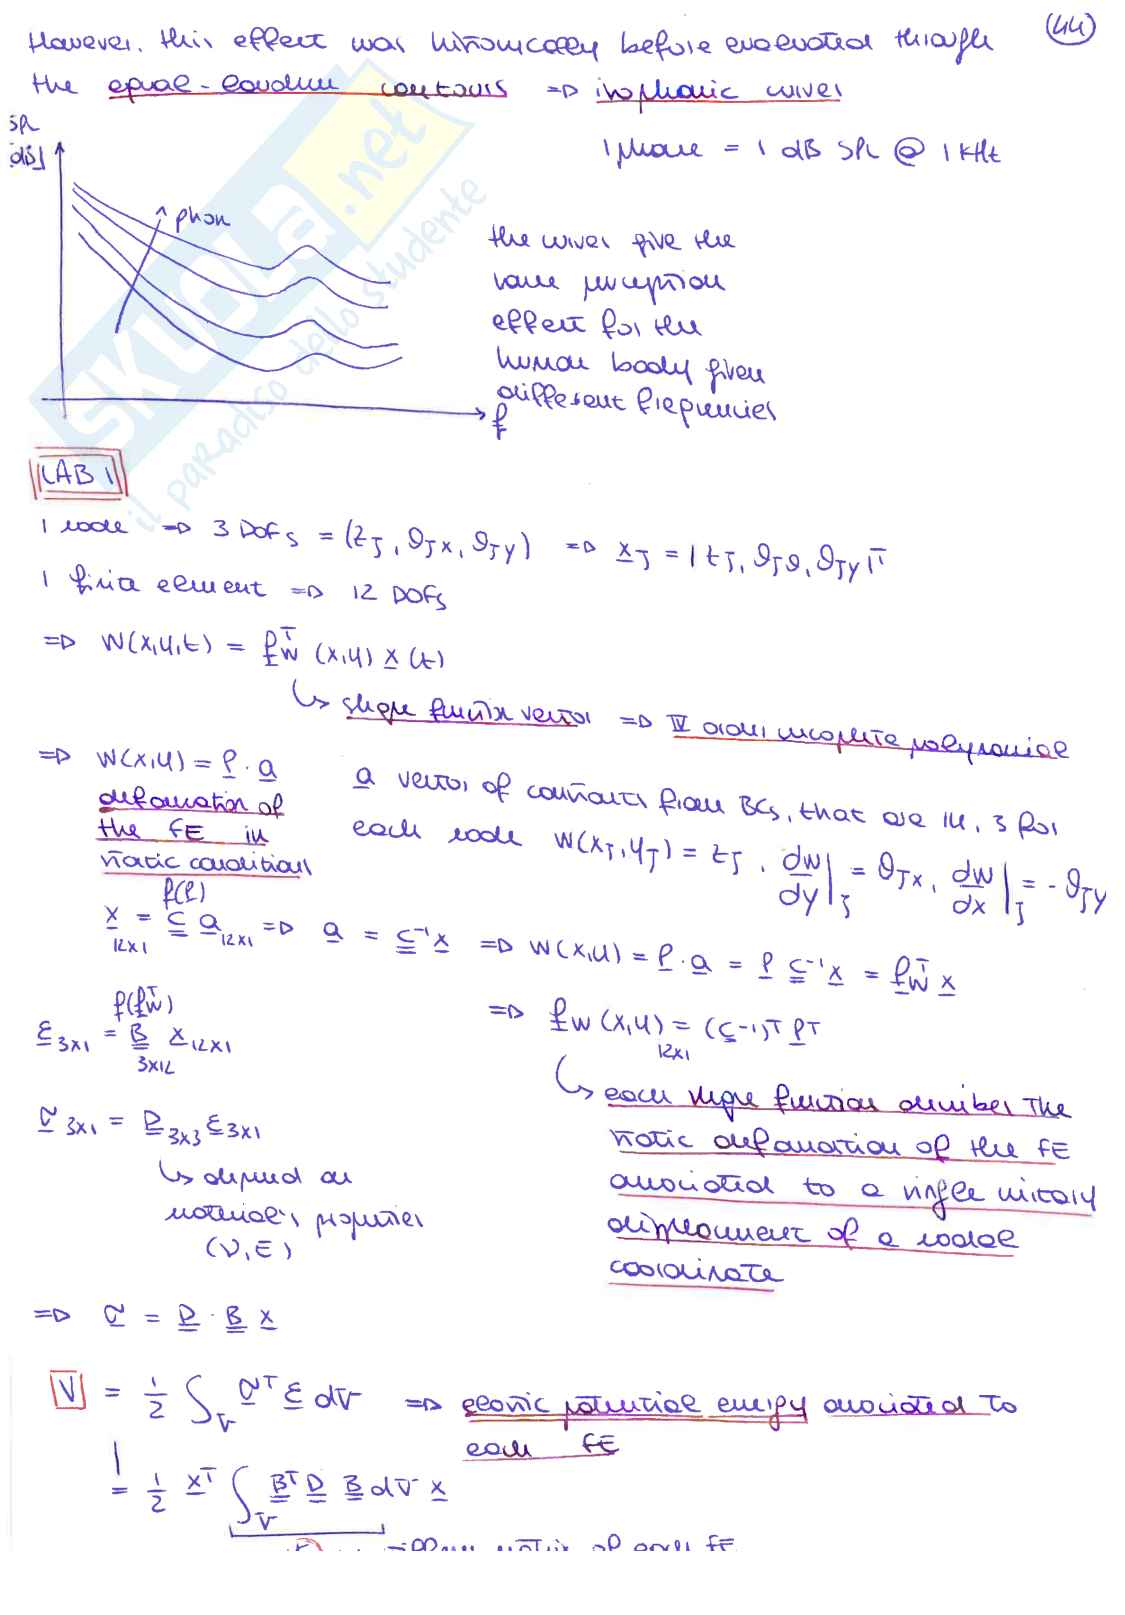 44
However, this effect was historically before evaluated through
the equal-loudness contours => isophonic curves
SPL
[dB]
1 phone = 1 dB SPL @ 1 kHz
phon
the curves give the
same perception
effect for the
human body given
different frequencies
f
SKUOLa.net
il paradiso dello studente
LAB 1
1 node => 3 DOFs = (zJ, θJx, θJy) => xJ = | zJ, θJθ, θJy |T
1 finite element => 12 DOFs
=> w(x,y,t) = fwT (x,y) x (t)
↳ shape function vector => IV order incomplete polynomial
=> w(x,y) = p · a
deformation of
the FE in
static conditions
a vector of constants from BCs, that are 14, 3 for
each node w(xJ, yJ) = zJ, dw/dy|J = θJx, dw/dx|J = -θJy
f(p)
x 12x1 = C a 12x1 => a = C-1 x => w(x,y) = p · a = p C-1 x = fwT x
f(fwT)
ε 3x1 = B 3x12 x 12x1
=> fw (x,y) 12x1 = (C-1)T pT
↳ each shape function describes the
static deformation of the FE
associated to a single unitary
displacement of a nodal
coordinate
σ 3x1 = D 3x3 ε 3x1
↳ depend on
material's properties
(ν, E)
=> σ = D · B x
V = 1/2 ∫V σT ε dV => elastic potential energy associated to
each FE
= 1/2 xT ∫V BT D B dV x
matrix of each FE